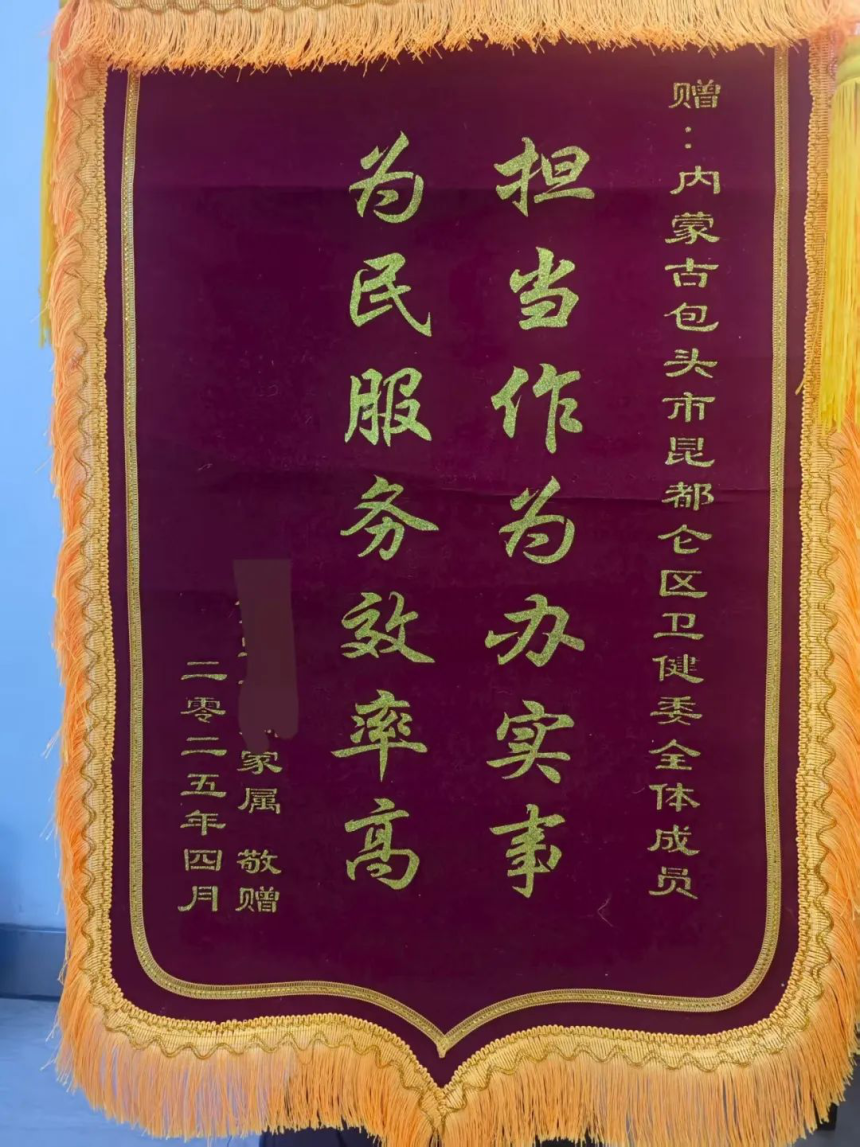 赠：内蒙古包头市昆都仑区卫健委全体成员
担当作为办实事
为民服务效率高
家属 敬赠
二零二五年四月